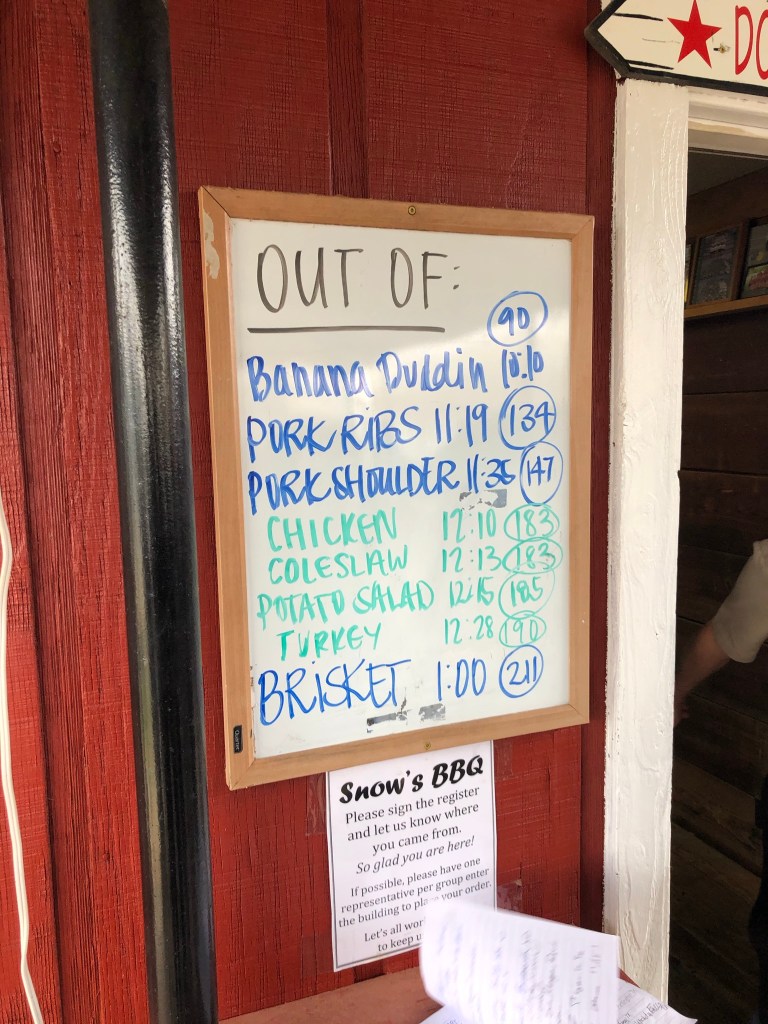 DO
OUT OF:
90
Banana Puddin 10:10
PORK RIBS 11:19 134
PORK SHOULDER 11:36 147
CHICKEN 12:10 183
COLESLAW 12:13 183
POTATO SALAD 12:15 185
TURKEY 12:28 190
BRISKET 1:00 211
Quartet
Snow's BBQ
Please sign the register
and let us know where
you came from.
So glad you are here!
If possible, please have one
representative per group enter
the building to place your order.
Let's all wor
to keep u